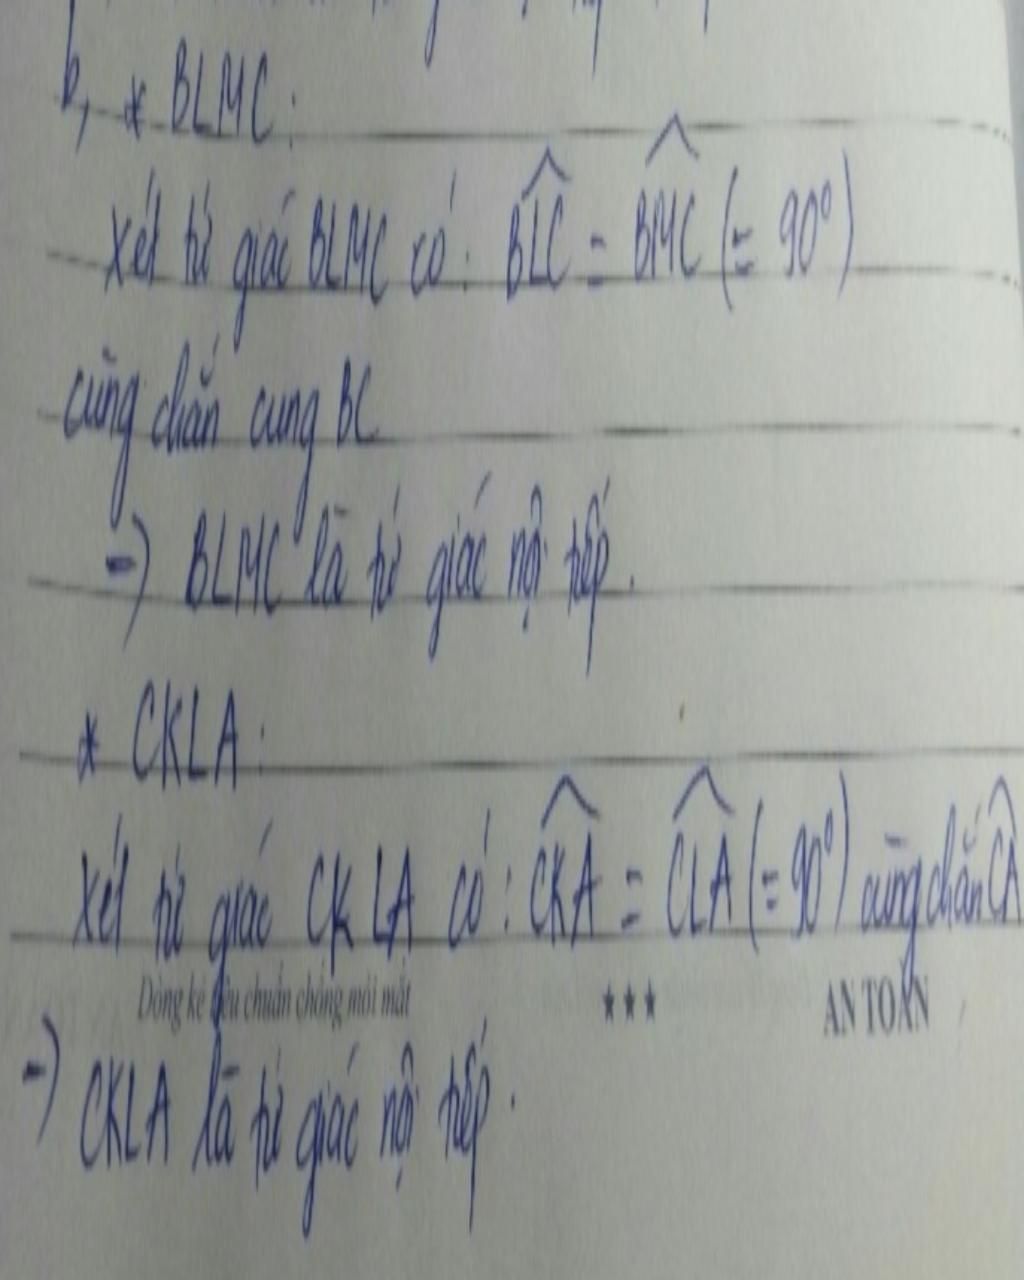 b, * BLMC:
Xét tứ giác BLMC có: \widehat{BLC} = \widehat{BMC} (= 90°)
cùng chắn cung BC
=) BLMC là tứ giác nội tiếp.
* CKLA:
Xét tứ giác CKLA có: \widehat{CKA} = \widehat{CLA} (= 90°) cùng chắn \widehat{CA}
Dòng kẻ tiêu chuẩn chống mỏi mắt *** AN TOÀN
=) CKLA là tứ giác nội tiếp.